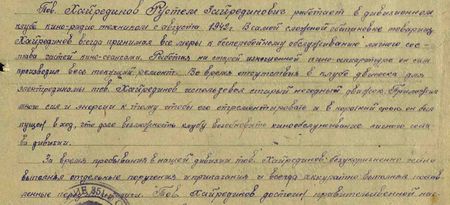 Тов. Хайрединов Рустем Хайрединович работает в дивизионном
клубе кино-радио техником с августа 1942 г. В самой сложной обстановке товарищ
Хайрединов всегда принимал все меры к бесперебойному обслуживанию личного сос-
тава частей кино-сеансами. Работая на старой изношенной кино-аппаратуре он сам
производил весь текущий ремонт. Во время отсутствия в клубе движка для
электродинамы тов. Хайрединов использовал старый негодный движок. Приложил
много сил и энергии к тому чтобы его отремонтировать и в короткий срок он был
пущен в ход, что дало возможность клубу возобновить кинообслуживание личного соста
ва дивизии.
За время пребывания в нашей дивизии тов. Хайрединов безукоризненно точно
выполнял отдельные поручения и приказания и всегда аккуратно выполнял постав
ленные перед ним задачи. Тов. Хайрединов достоин правительственной наг